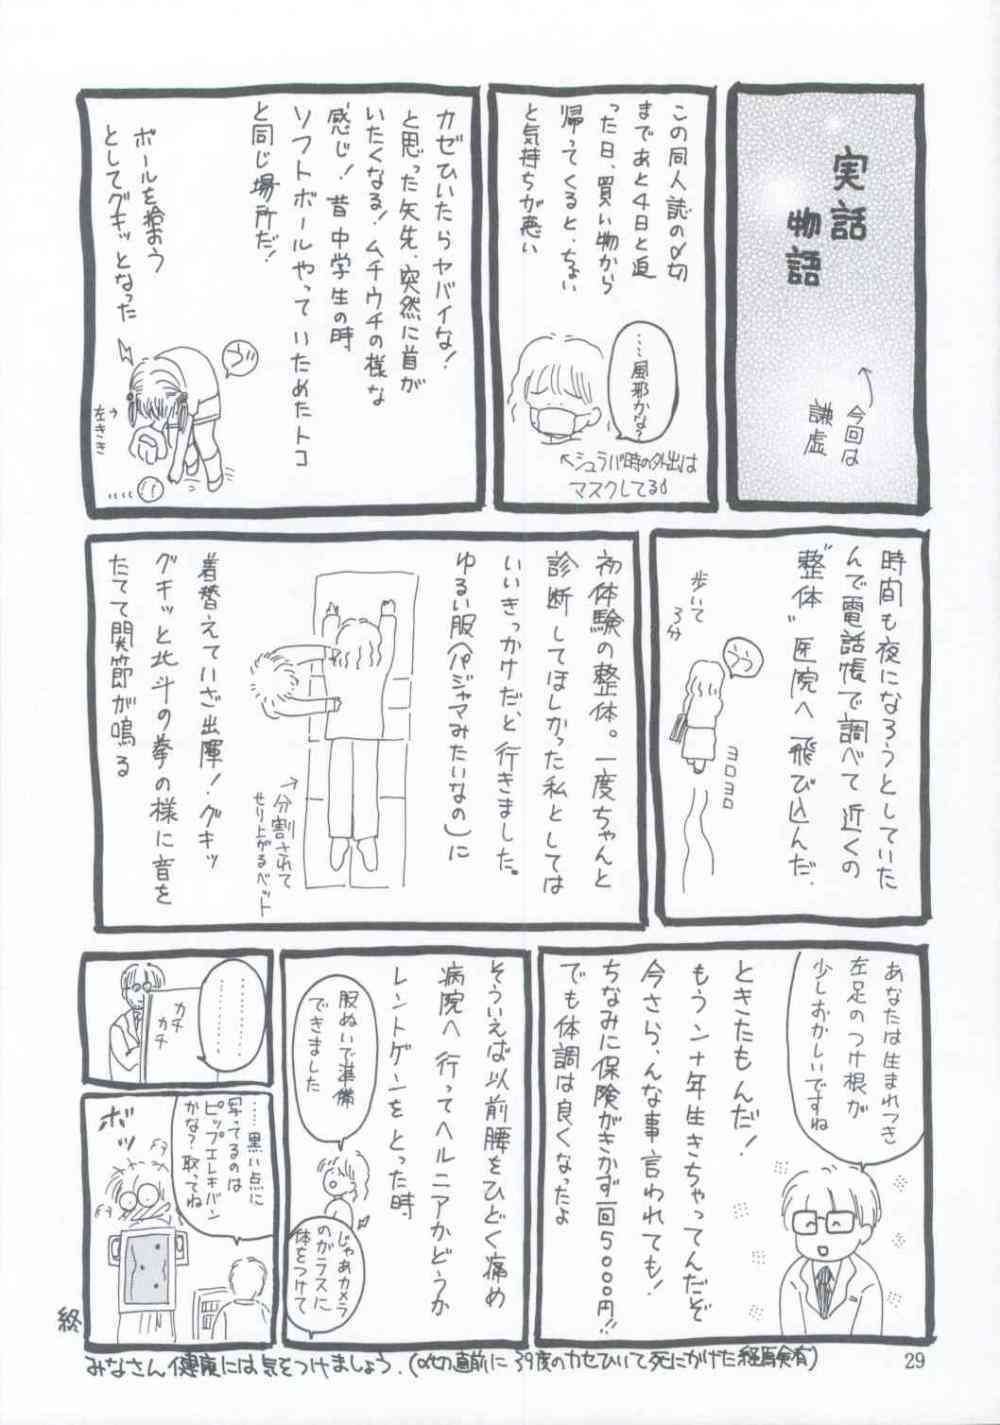 実話
物語
←今回は
謙虚
この同人誌の〆切
まであと4日と迫
った日、買い物から
帰ってくると、ちょい
と気持ちが悪い
……風邪かな?
↖シュラバ時の外出は
マスクしてる♂
カゼひいたらヤバイな!
と思った矢先、突然に首が
いたくなる!ムチウチの様な
感じ!昔中学生の時
ソフトボールやっていためたトコ
と同じ場所だ!
ボールを拾おう
としてグキッとなった
ゔ
左きき
時間も夜になろうとしていた
んで電話帳で調べて近くの
“整体”医院へ飛び込んだ.
歩いて
3分
うう
ヨロヨロ
初体験の整体。一度ちゃんと
診断してほしかった私としては
いいきっかけだ、と行きました。
ゆるい服(パジャマみたいなの)に
→分割されて
せり上がるベット
着替えていざ出陣!グキッ
グキッと北斗の拳の様に音を
たてて関節が鳴る
あなたは生まれつき
左足のつけ根が
少しおかしいですね
ときたもんだ!
もうン十年生きちゃってんだぞ
今さら、んな事言われても!
ちなみに保険がきかず一回5000円!!
でも体調は良くなったよ
そういえば以前腰をひどく痛め
病院へ行ってヘルニアかどうか
レントゲンをとった時
服ぬいで準備
できました
じゃあカメラ
のガラスに
体をつけて
…………
…………
カチ
カチ
……黒い点に
写ってるのは
ピップエレキバン
かな?取ってね
ボッ
終
みなさん健康には気をつけましょう.(〆切直前に39度のカゼひいて死にかけた経験有)
29